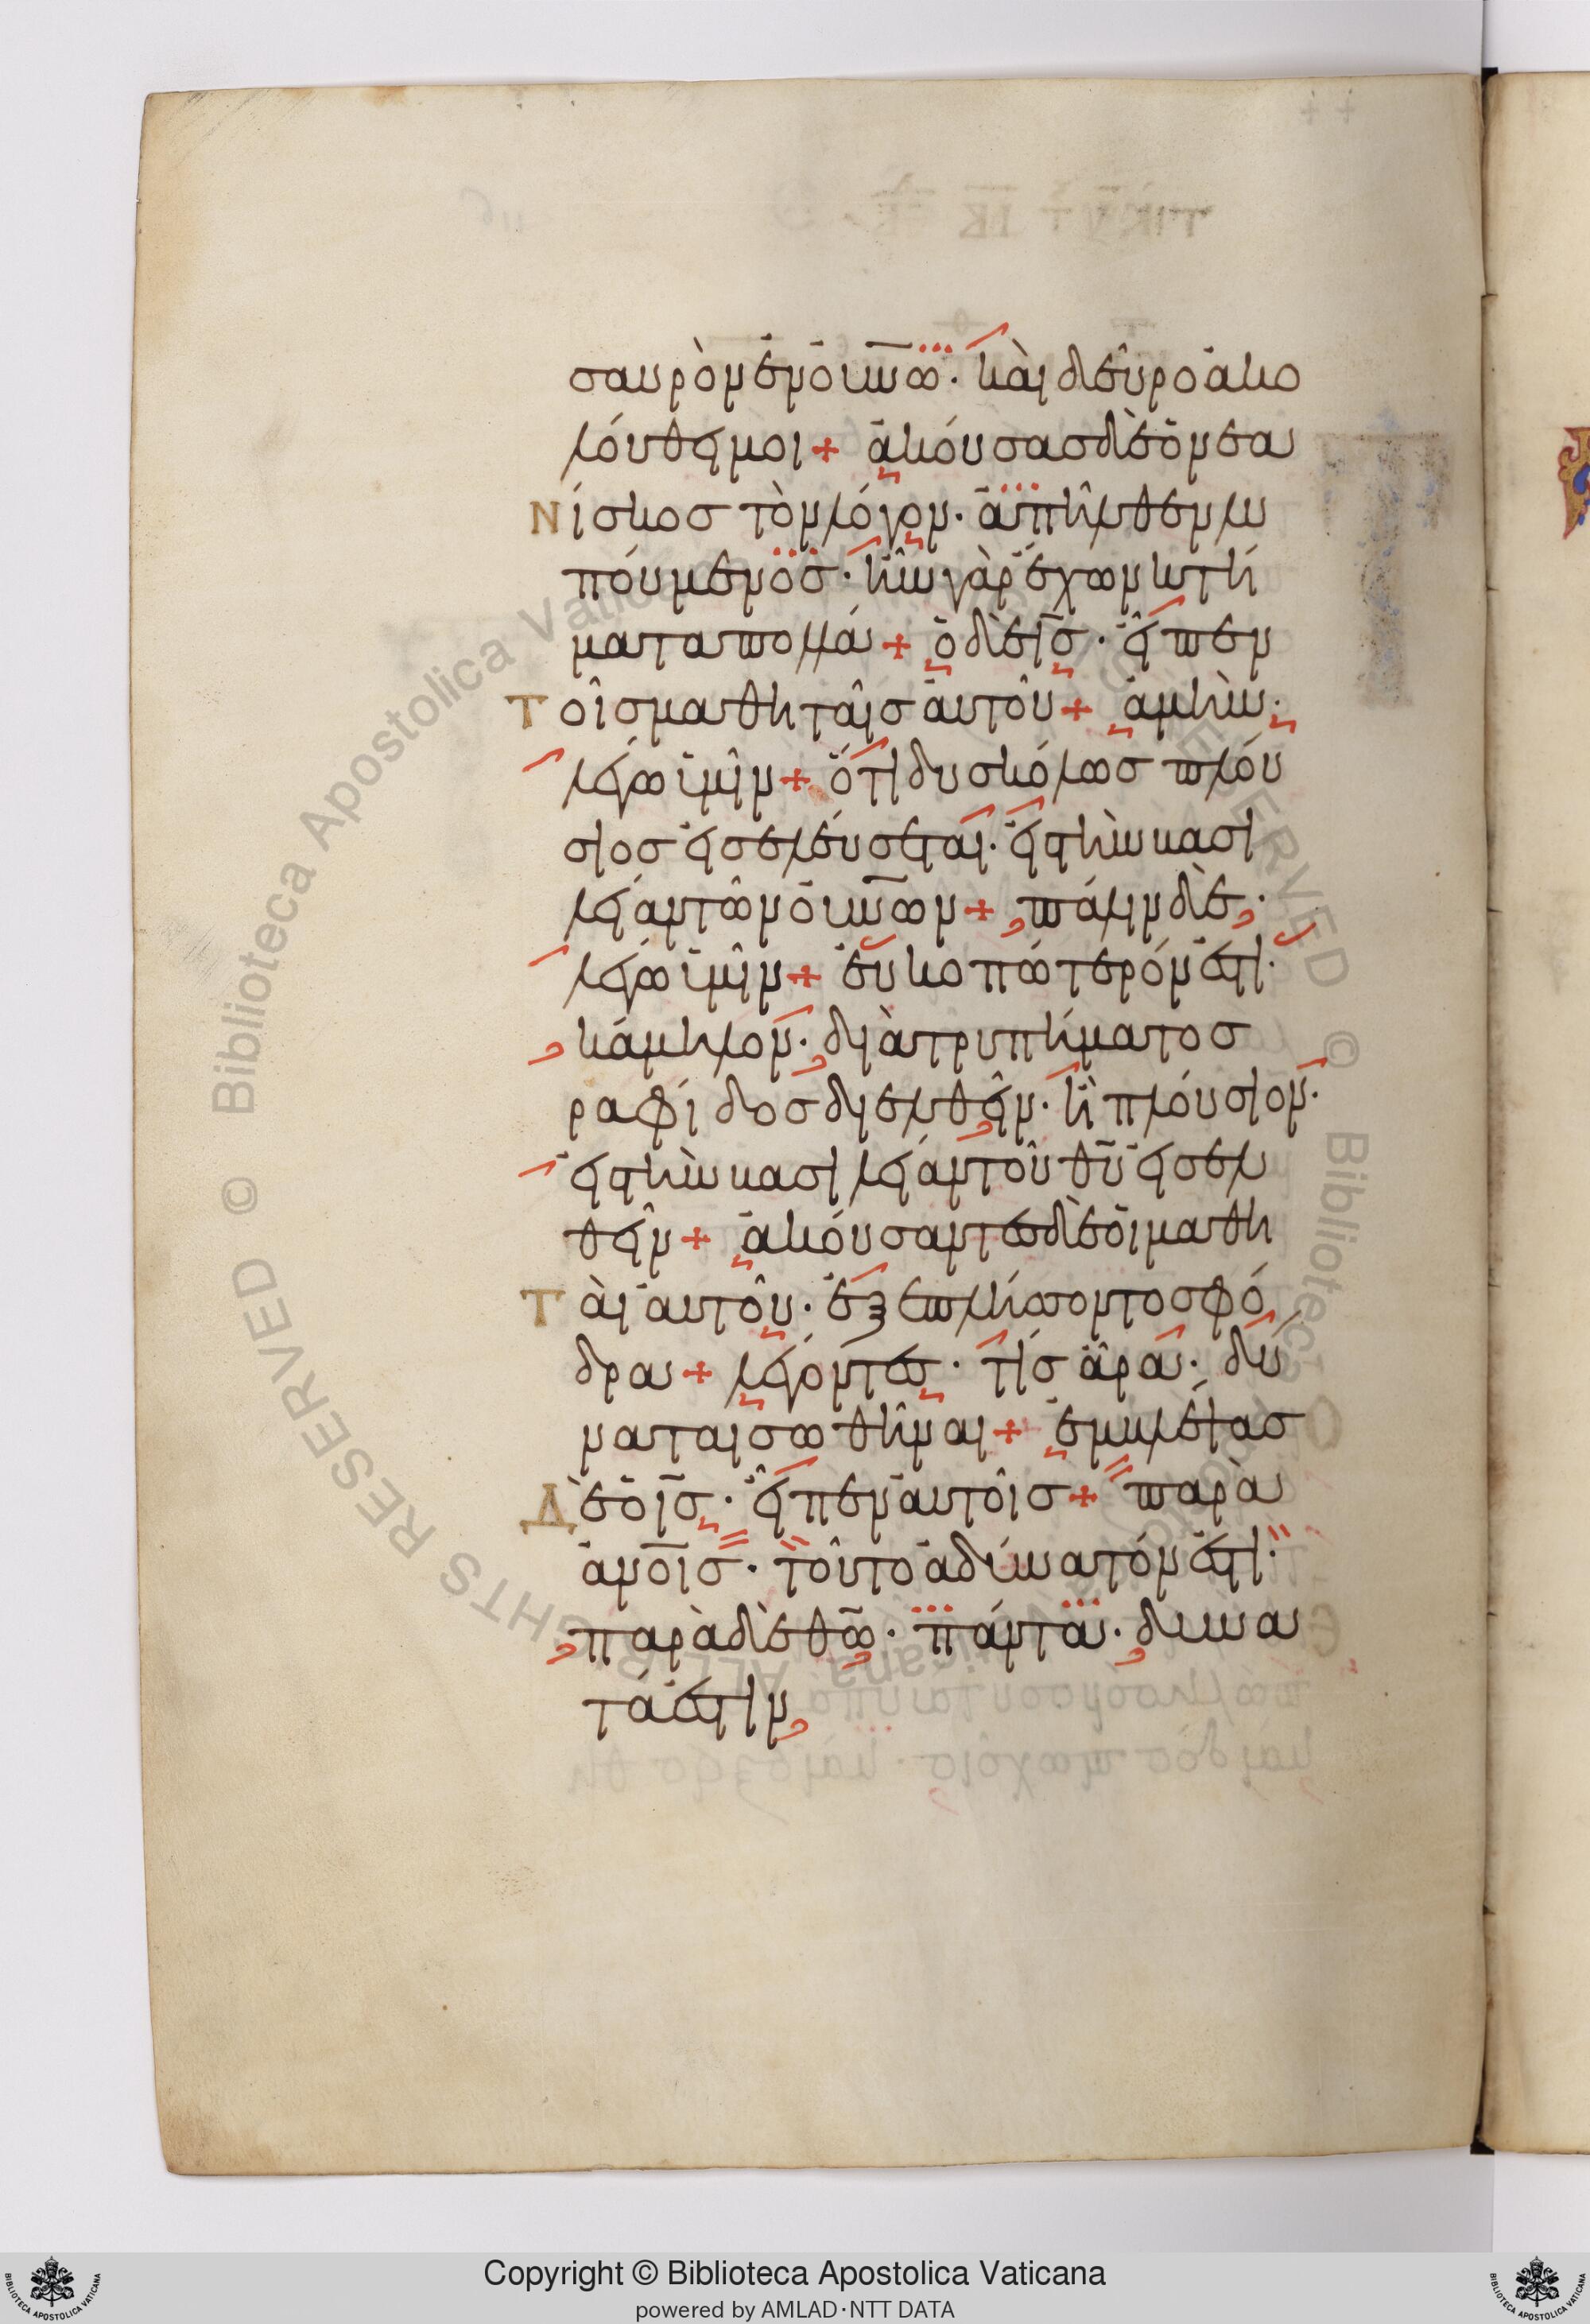 σαυρὸν ἐν ὀυνῶ· καὶ δεῦρο ἀκο
λούθει μοι + ἀκούσας δὲ ὁ νεα
νίσκος τὸν λόγον· ἀπῆλθεν λυ
πούμενος· ἦν γὰρ ἔχων κτή
ματα πολλά + ὁ δὲ ις· εἶπεν
τοῖς μαθηταῖς αὐτοῦ + ἀμὴν·
λέγω ὑμῖν + ὅτι δυσκόλως πλού
σιος εἰσελεύσεται· εἰς τὴν βασι
λείαν τῶν ὀυνῶν + πάλιν δὲ·
λέγω ὑμῖν + εὐκοπώτερόν ἐστι·
κάμηλον· διὰ τρυπήματος
ραφίδος διελθεῖν· ἢ πλούσιον·
εἰς τὴν βασιλείαν τοῦ θυ εἰσελ
θεῖν + ἀκούσαντες δὲ οἱ μαθη
ταὶ αὐτοῦ· ἐξεπλήσσοντο σφό
δρα + λέγοντες· τίς ἄρα· δύ
ναται σωθῆναι + ἐμβλέψας
δὲ ὁ ις· εἶπεν αὐτοῖς + παρὰ
ἀνοις· τοῦτο ἀδύνατόν ἐστι·
παρὰ δὲ θω· πάντα· δυνα
τά ἐστιν
Copyright © Biblioteca Apostolica Vaticana
powered by AMLAD·NTT DATA